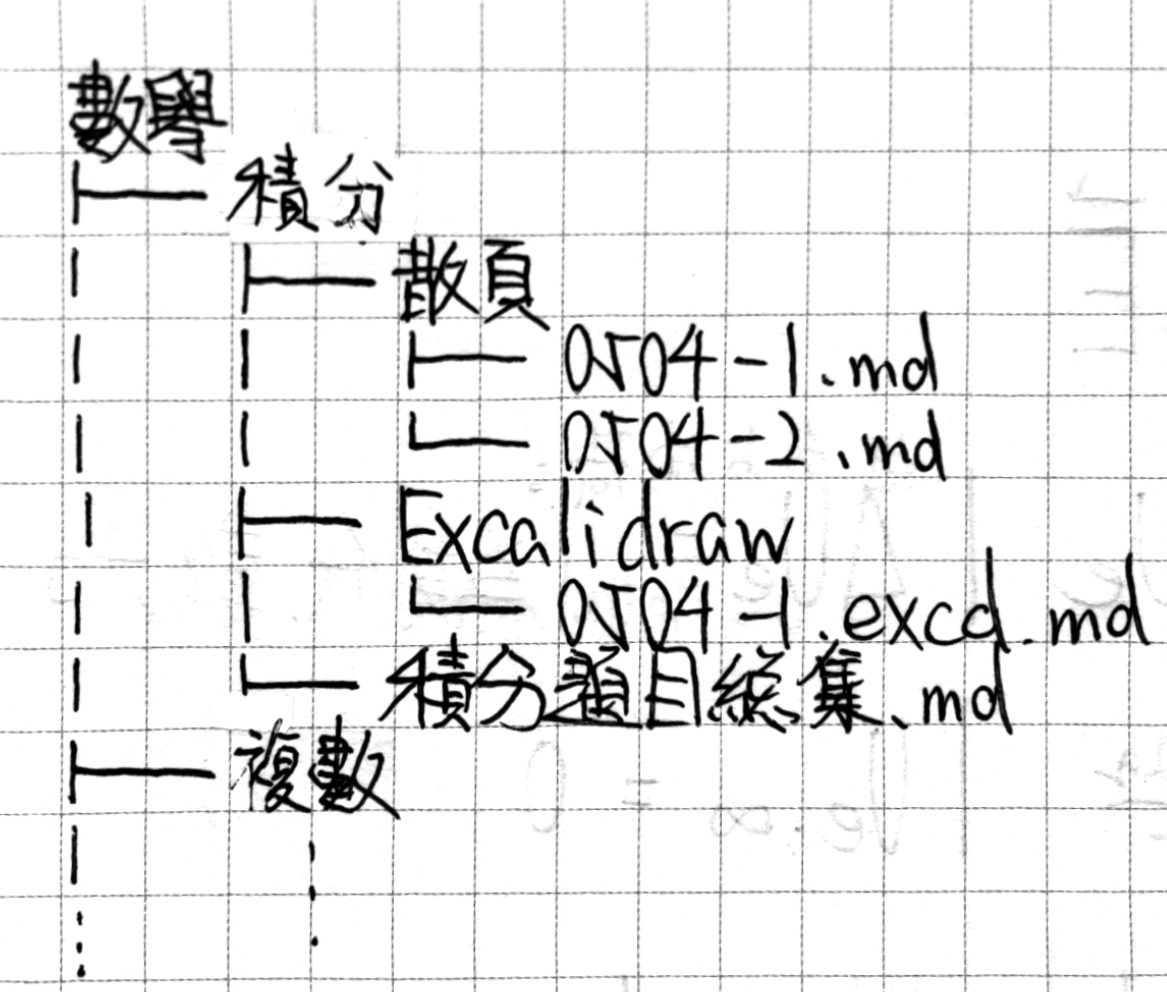 數學
├── 積分
│   ├── 散頁
│   │   ├── 0504-1.md
│   │   └── 0504-2.md
│   ├── Excalidraw
│   │   └── 0504-1.excd.md
│   └── 積分題目総集.md
├── 複數
│   ⋮
⋮